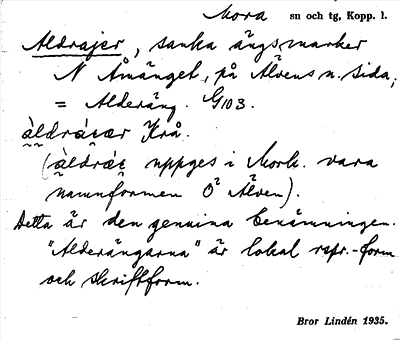 Mora sn och tg, Kopp. l.
Aldrajer, sanka ängsmarker
N Åmänget, på Älvens n. sida;
= Alderäng. G103.
àldráɛær Krå.
(àldráɛ uppges i Mork. vara
namnformen Ö Älven).
Detta är den genuina benämningen.
"Alderängarna" är lokal rspr.-form
och skriftform.
Bror Lindén 1935.